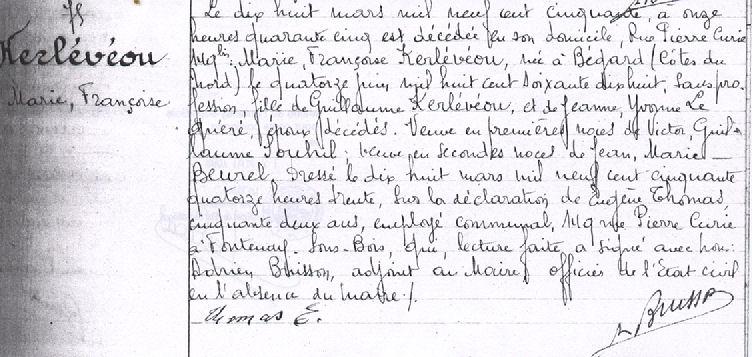 75
Kerlévéou
Marie, Françoise
Le dix huit mars mil neuf cent cinquante, à onze
heures quarante cinq est décédée en son domicile, Rue Pierre Curie
Marie, Françoise Kerlévéou, née à Bégard (Côtes du
Nord) le quatorze juin mil huit cent soixante dix huit, sans pro-
fession, fille de Guillaume Kerlévéou, et de Jeanne, Yvonne Le
époux décédés. Veuve en premières noces de Victor, Guil-
laume ; veuve en secondes noces de Jean, Marie
Beurel. Dressé le dix huit mars mil neuf cent cinquante
quatorze heures trente, sur la déclaration de Eugène Thomas,
cinquante deux ans, employé communal, 149 rue Pierre Curie
à Fontenay-sous-Bois, qui, lecture faite, a signé avec nous
Adrien Buisson, adjoint au Maire, officier de l'Etat civil
en l'absence du maire ./.
Thomas E.
Buisson